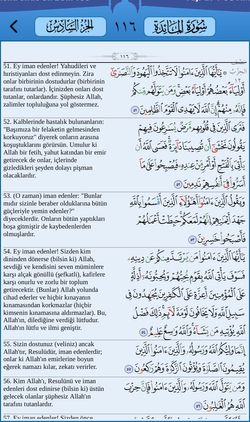 الجزء السادس
١١٦
سورة المائدة
١١٦
51. Ey iman edenler! Yahudileri ve
hıristiyanları dost edinmeyin. Zira
onlar birbirinin dostudurlar (birbirinin
tarafını tutarlar). İçinizden onları dost
tutanlar, onlardandır. Şüphesiz Allah,
zalimler topluluğuna yol göstermez.
يَا أَيُّهَا الَّذِينَ آمَنُوا لَا تَتَّخِذُوا الْيَهُودَ وَالنَّصَارَىٰ
أَوْلِيَاءَ بَعْضُهُمْ أَوْلِيَاءُ بَعْضٍ وَمَنْ يَتَوَلَّهُمْ مِنْكُمْ
فَإِنَّهُ مِنْهُمْ إِنَّ اللَّهَ لَا يَهْدِي الْقَوْمَ الظَّالِمِينَ ٥١
52. Kalblerinde hastalık bulunanların:
"Başımıza bir felaketin gelmesinden
korkuyoruz" diyerek onların arasına
koşuştuklarını görürsün. Umulur ki
Allah bir fetih, yahut katından bir emir
getirecek de onlar, içlerinde
gizledikleri şeyden dolayı pişman
olacaklardır.
فَتَرَى الَّذِينَ فِي قُلُوبِهِمْ مَرَضٌ يُسَارِعُونَ فِيهِمْ
يَقُولُونَ نَخْشَىٰ أَنْ تُصِيبَنَا دَائِرَةٌ فَعَسَى اللَّهُ أَنْ
يَأْتِيَ بِالْفَتْحِ أَوْ أَمْرٍ مِنْ عِنْدِهِ فَيُصْبِحُوا عَلَىٰ مَا
أَسَرُّوا فِي أَنْفُسِهِمْ نَادِمِينَ ٥٢
53. (O zaman) iman edenler: "Bunlar
mıdır sizinle beraber olduklarına bütün
güçleriyle yemin edenler?"
diyeceklerdir. Onların bütün yaptıkları
boşa gitmiştir de kaybedenlerden
olmuşlardır.
وَيَقُولُ الَّذِينَ آمَنُوا أَهَٰؤُلَاءِ الَّذِينَ أَقْسَمُوا بِاللَّهِ
جَهْدَ أَيْمَانِهِمْ إِنَّهُمْ لَمَعَكُمْ حَبِطَتْ أَعْمَالُهُمْ
فَأَصْبَحُوا خَاسِرِينَ ٥٣
54. Ey iman edenler! Sizden kim
dininden dönerse (bilsin ki) Allah,
sevdiği ve kendisini seven müminlere
karşı alçak gönüllü (şefkatli), kafirlere
karşı onurlu ve zorlu bir toplum
getirecektir. (Bunlar) Allah yolunda
cihad ederler ve hiçbir kınayanın
kınamasından korkmazlar (hiçbir
kimsenin kınamasına aldırmazlar). Bu,
Allah'ın, dilediğine verdiği lütfudur.
Allah'ın lütfu ve ilmi geniştir.
يَا أَيُّهَا الَّذِينَ آمَنُوا مَنْ يَرْتَدَّ مِنْكُمْ عَنْ دِينِهِ
فَسَوْفَ يَأْتِي اللَّهُ بِقَوْمٍ يُحِبُّهُمْ وَيُحِبُّونَهُ أَذِلَّةٍ
عَلَى الْمُؤْمِنِينَ أَعِزَّةٍ عَلَى الْكَافِرِينَ يُجَاهِدُونَ فِي
سَبِيلِ اللَّهِ وَلَا يَخَافُونَ لَوْمَةَ لَائِمٍ ذَٰلِكَ فَضْلُ
اللَّهِ يُؤْتِيهِ مَنْ يَشَاءُ وَاللَّهُ وَاسِعٌ عَلِيمٌ ٥٤
55. Sizin dostunuz (veliniz) ancak
Allah'tır, Resulüdür, iman edenlerdir;
onlar ki Allah'ın emirlerine boyun
eğerek namazı kılar, zekatı verirler.
إِنَّمَا وَلِيُّكُمُ اللَّهُ وَرَسُولُهُ وَالَّذِينَ آمَنُوا الَّذِينَ
يُقِيمُونَ الصَّلَاةَ وَيُؤْتُونَ الزَّكَاةَ وَهُمْ رَاكِعُونَ ٥٥
56. Kim Allah'ı, Resulünü ve iman
edenleri dost edinirse (bilsin ki) üstün
gelecek olanlar şüphesiz Allah'ın
tarafını tutanlardır.
وَمَنْ يَتَوَلَّ اللَّهَ وَرَسُولَهُ وَالَّذِينَ آمَنُوا فَإِنَّ حِزْبَ
اللَّهِ هُمُ الْغَالِبُونَ ٥٦
57. Ey iman edenler! Sizden önce